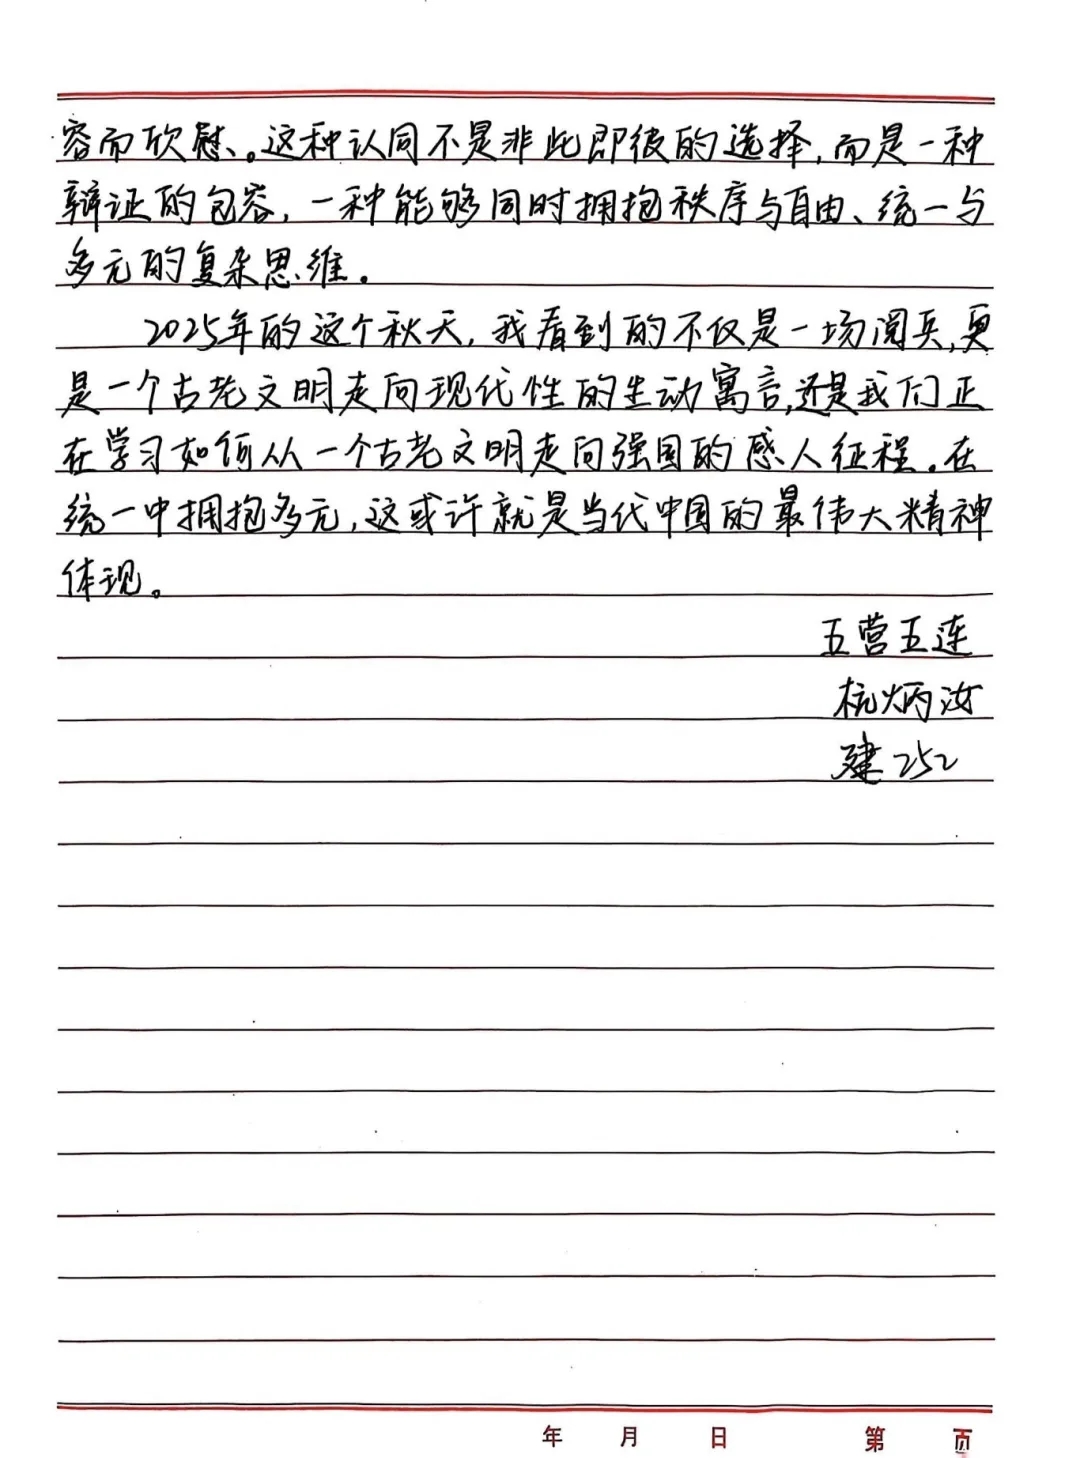 容而欣慰。这种认同不是非此即彼的选择，而是一种
辩证的包容，一种能够同时拥抱秩序与自由、统一与
多元的复杂思维。
2025年的这个秋天，我看到的不仅是一场阅兵，更
是一个古老文明走向现代性的生动寓言，还是我们正
在学习如何从一个古老文明走向强国的感人征程。在
统一中拥抱多元，这或许就是当代中国的最伟大精神
体现。
五营五连
杭炳汝
建252
年 月 日 第 页